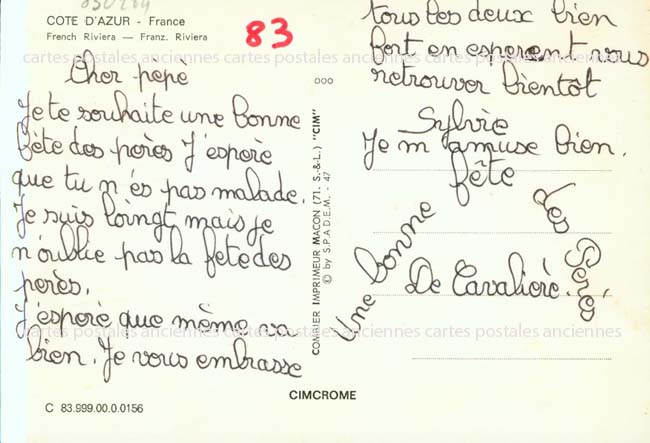 030284
COTE D'AZUR - France
French Riviera — Franz. Riviera
83
Cher pépé
Je te souhaite une bonne
fête des pères J'éspère
que tu n'és pas malade.
Je suis loingt mais je
n'oublie pas la fête des
pères.
J'éspère que mème va
bien. Je vous embrasse
tous les deux bien
fort en esperent vous
retrouver bientôt
Sylvie
Je m'amuse bien.
Une bonne fête des Pères
De Cavalière.
COMBIER IMPRIMEUR MACON (71. S.-&-L.) "CIM"
© by S.P.A.D.E.M. - 47
CIMCROME
C 83.999.00.0.0156
cartes postales anciennes cartes postales anciennes cartes postales anciennes
cartes postales anciennes cartes postales anciennes cartes postales anciennes